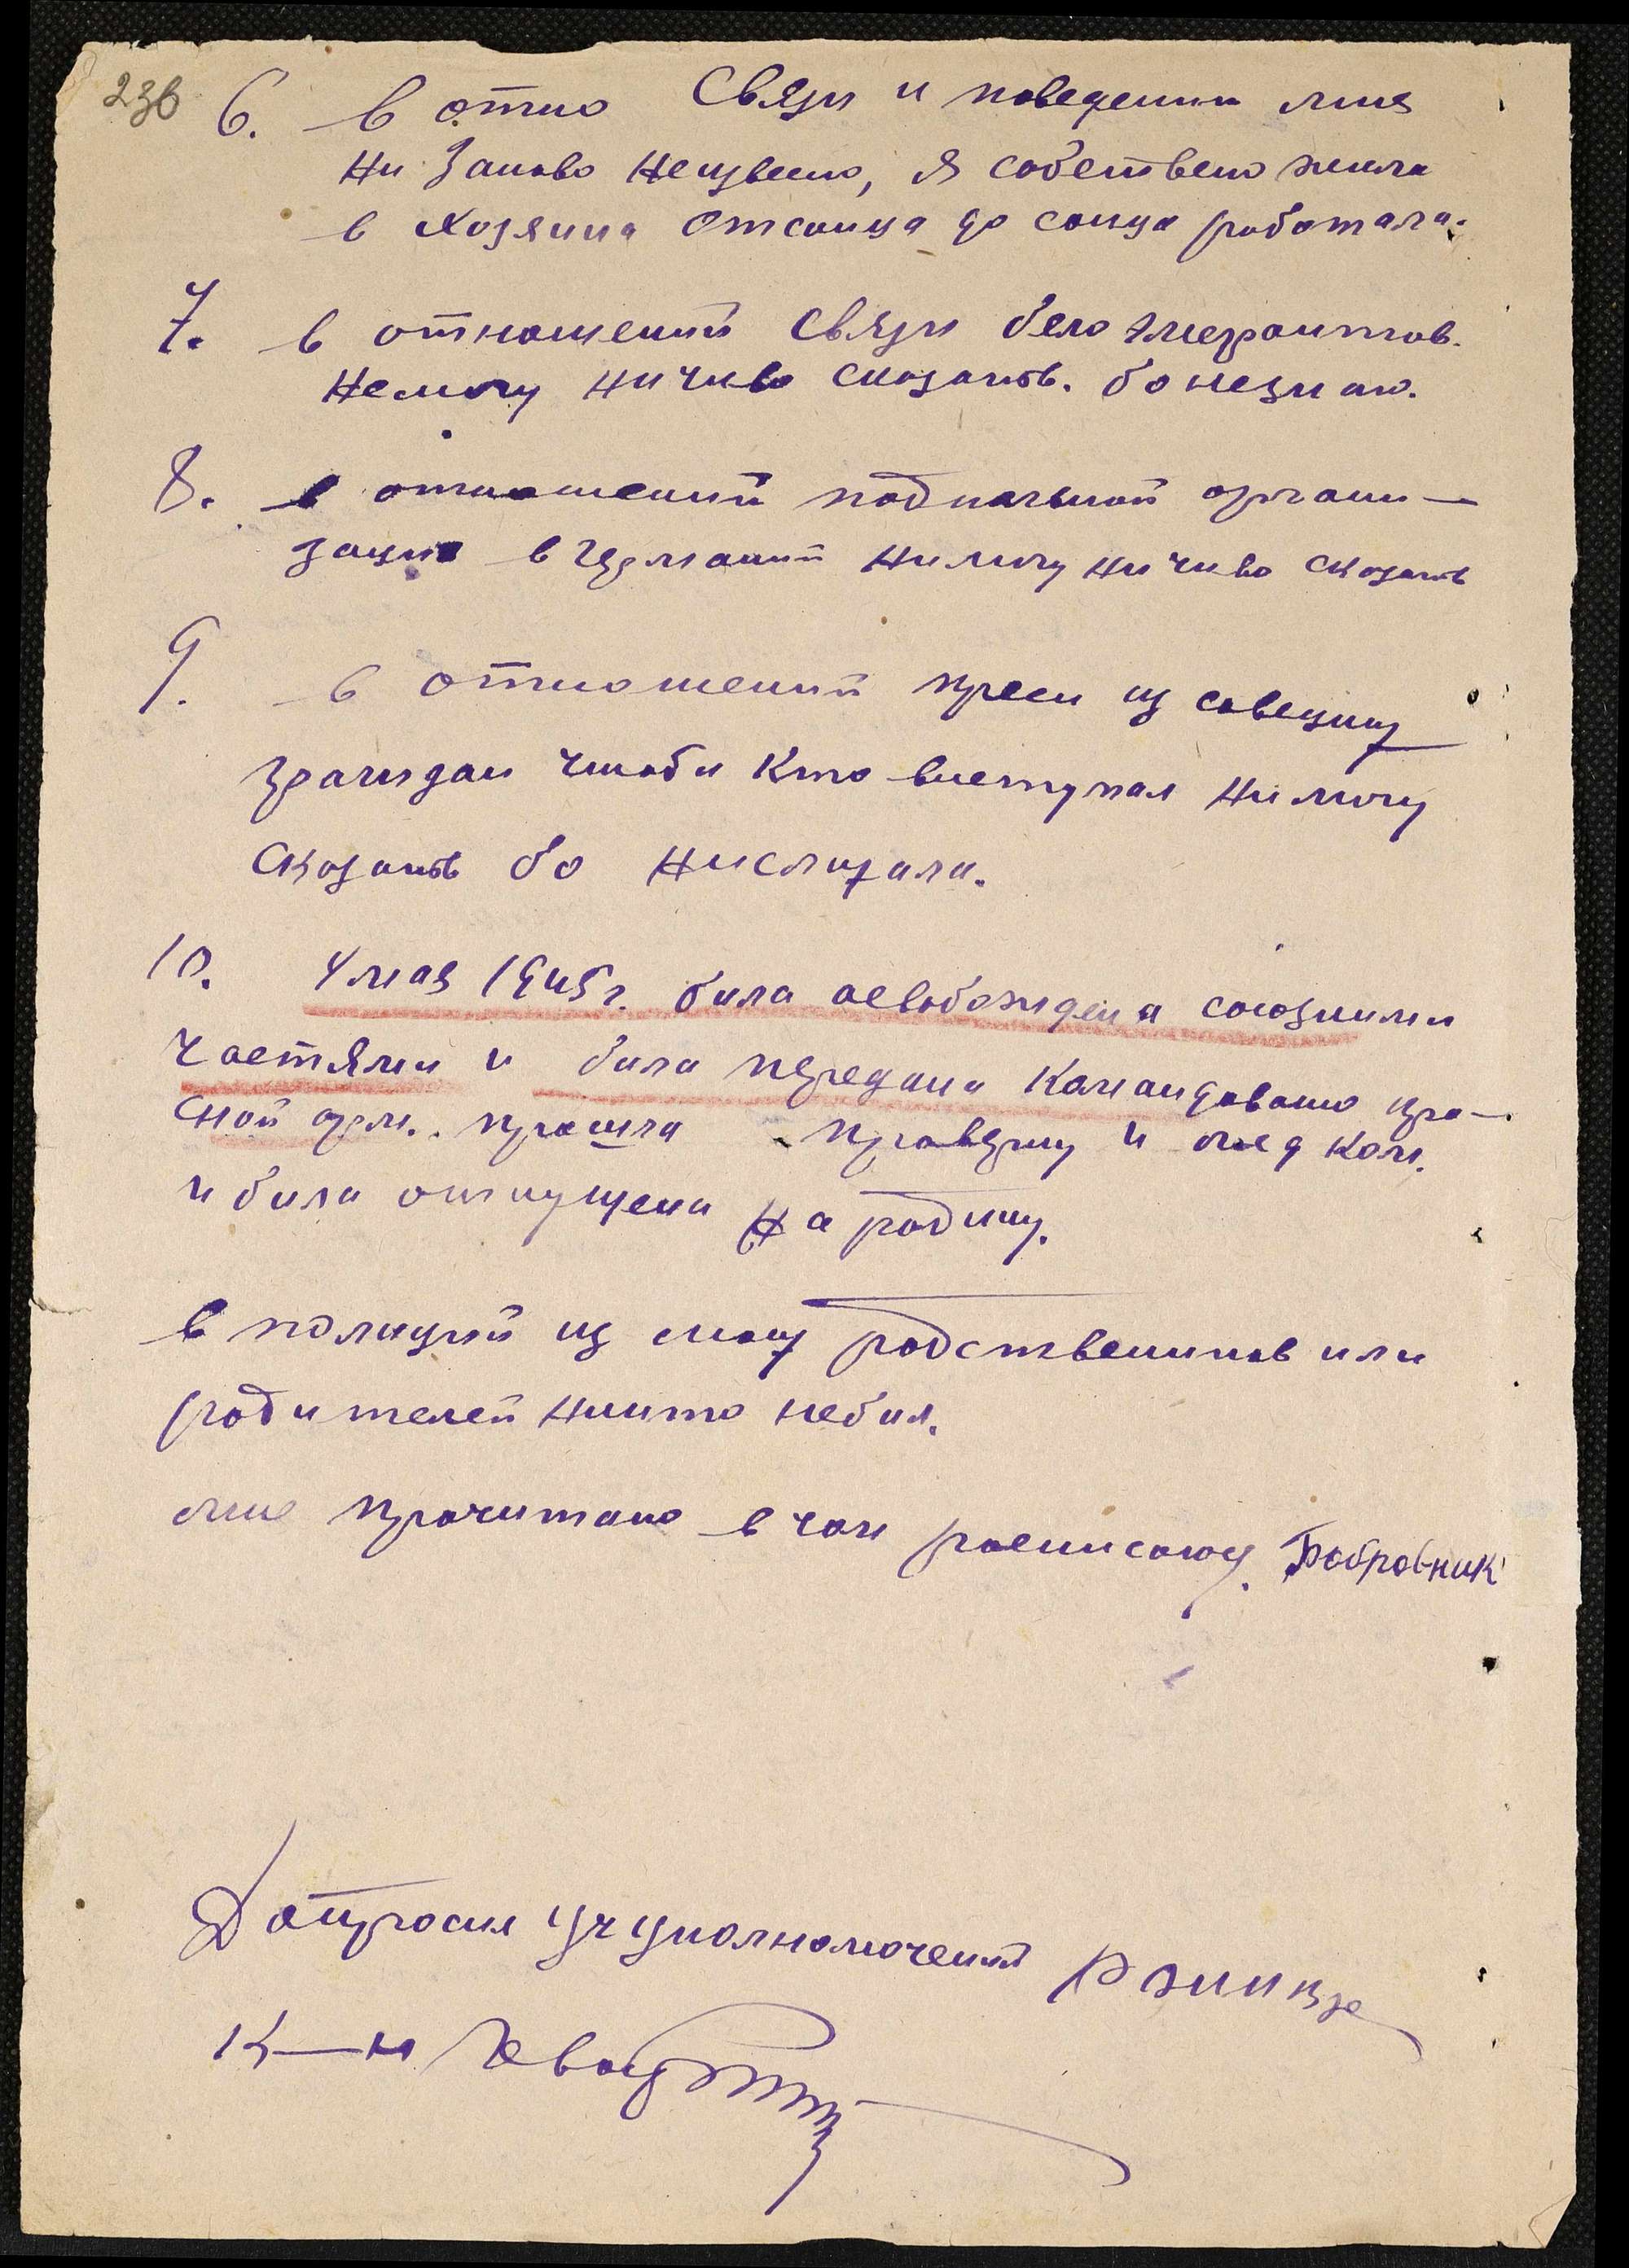 236
6. в отно Связи и поведении лица
ни Заково неизвесно, я собствено жила
в хозяина от сонца до сонца работала.
7. в отношений связи бело эмегрантов.
немогу ничиво сказать. бо незнаю.
8. в отношений подпальной органи-
зации в Германий нимогу ничиво сказать
9. в отношений преси из совецких
граждан чтоби кто виступал нимогу
сказать бо нислихала.
10. 4 мая 1945 г. била освобождена союзними
частями и била передана командованю кра-
сной арм. прошла проверку и мед ком.
и била отпущена на родину.
в полиций из моих родствеников или
родителей никто небил.
мне прочитано в чом росписаюсь. Бобровник
Допросил уч уполномочений
К-н